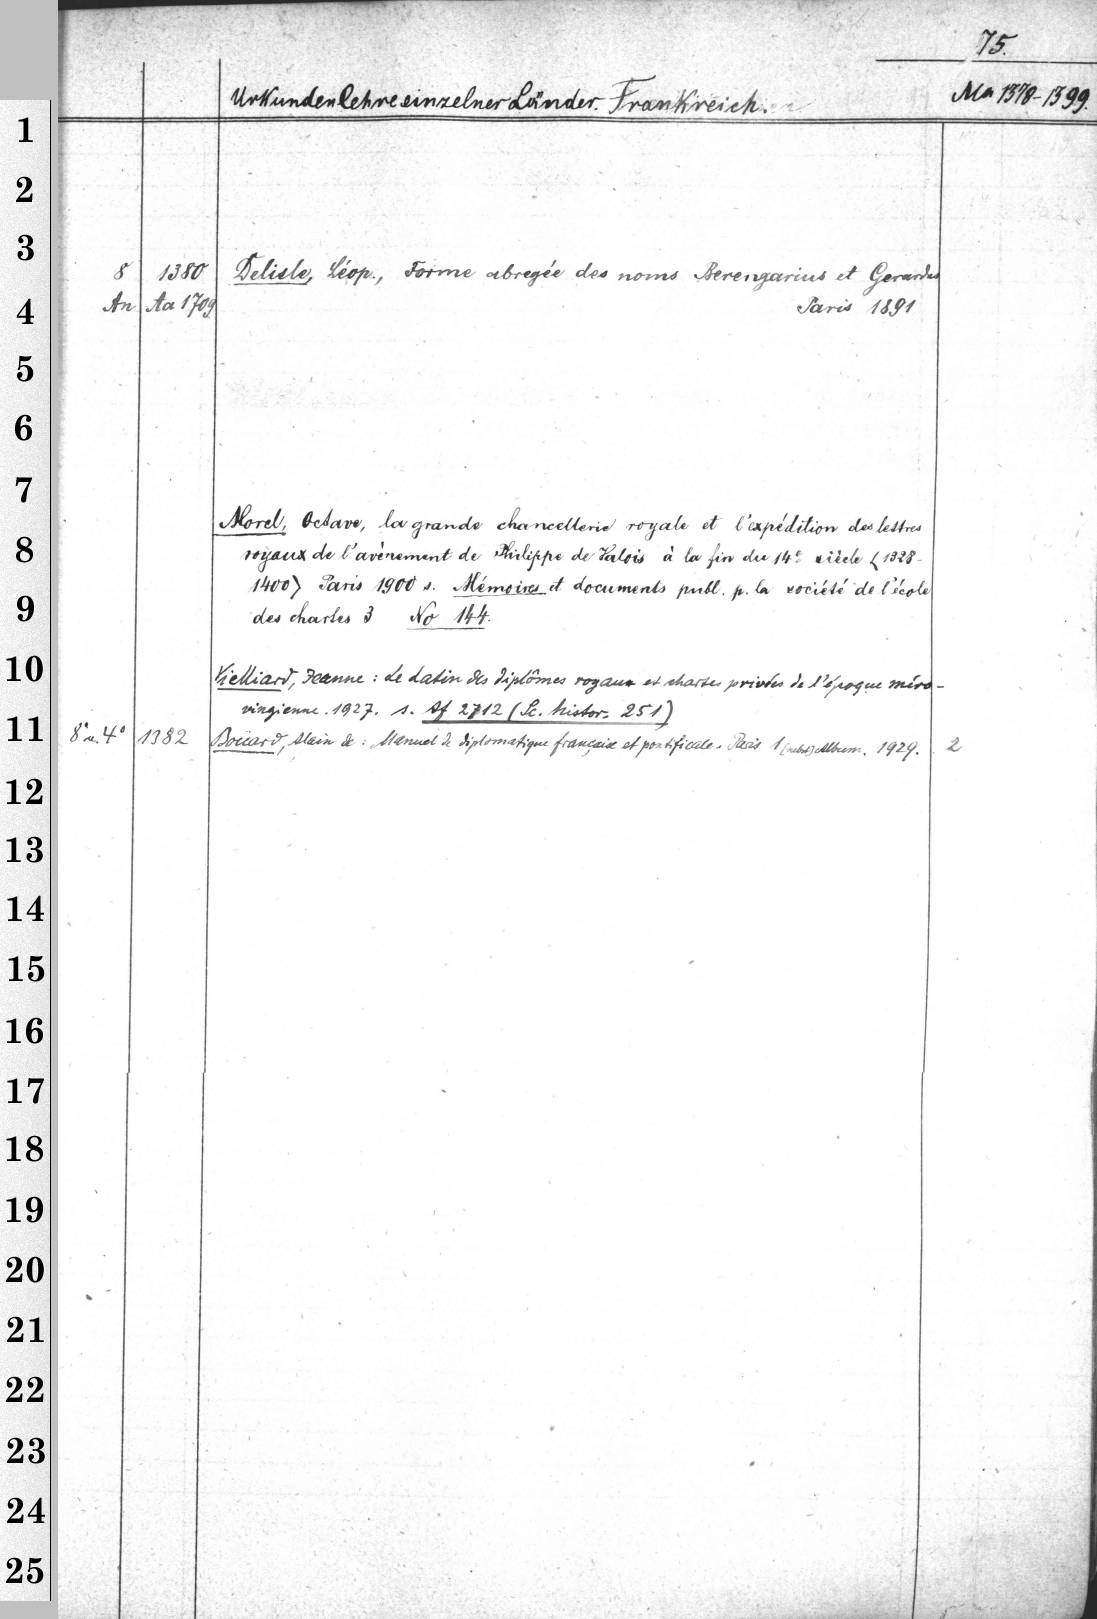 75.
Urkundenlehre einzelner Länder. Frankreich. Ma 1378-1399.
1
2
3
8 1380 Delisle, Léop., Forme abregée des noms Berengarius et Gerardus
An Aa 1709 Paris 1891
4
5
6
7
Morel, Octave, la grande chancellerie royale et l'expédition des lettres
8
royaux de l'avènement de Philippe de Valois à la fin du 14e siècle <1328-
1400> Paris 1900 s. Mémoires et documents publ. p. la société de l'école
9
des chartes 3 No 144.
10
Vielliard, Jeanne: Le Latin des diplômes royaux et chartes privées de l'époque méro-
vingienne. 1927. s. Af 2712 (Sc. histor. 251)
11
8° u. 4° 1382 Boüard, Alain de: Manuel de diplomatique française et pontificale. Paris 1 (nebst) Album. 1929. 2
12
13
14
15
16
17
18
19
20
21
22
23
24
25